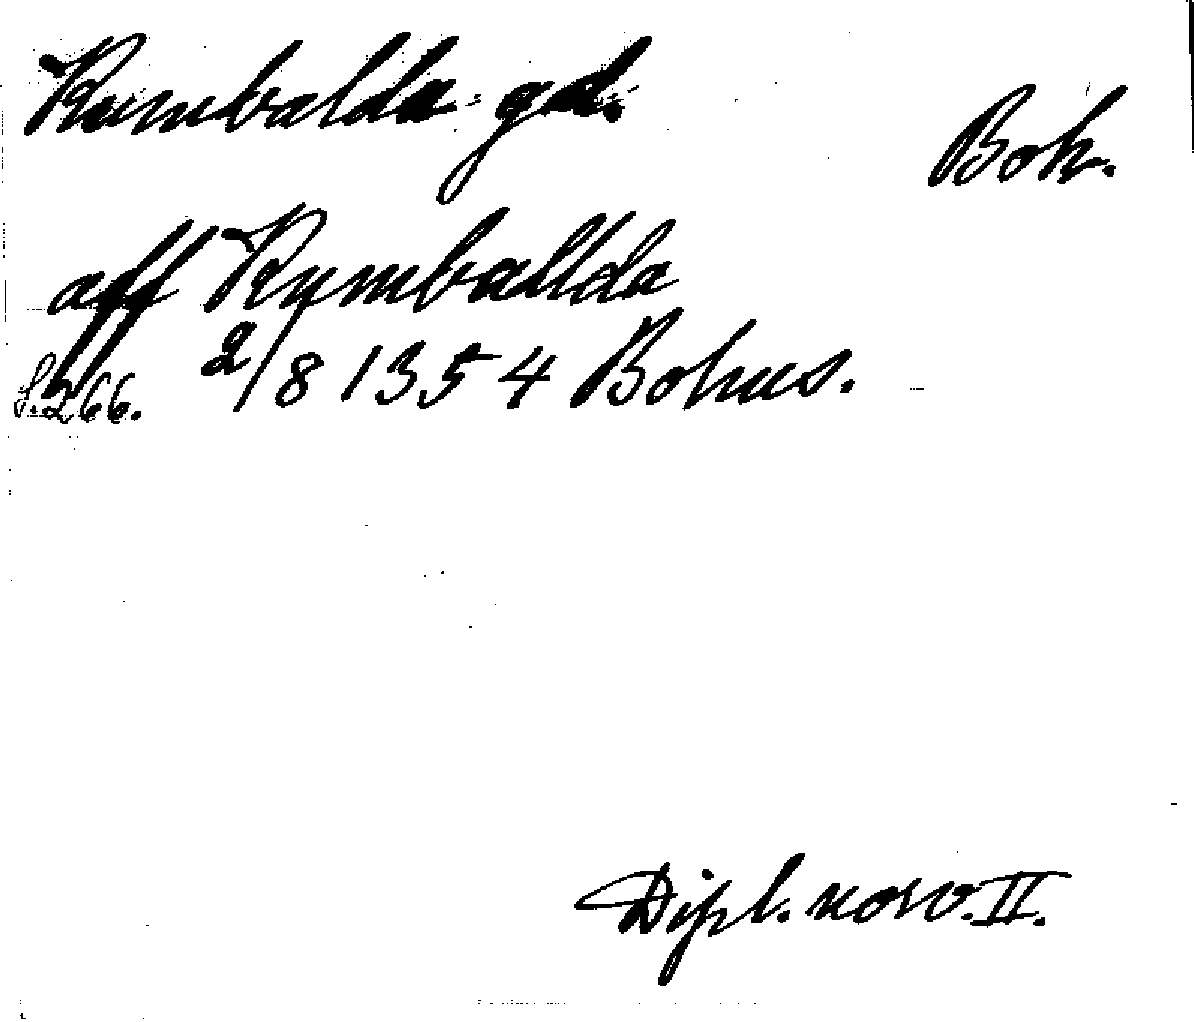 Rumbalda gd.
Boh.
aff Rymballda
s. 266. 2/8 1354 Bohus.
Dipl. norv. II.